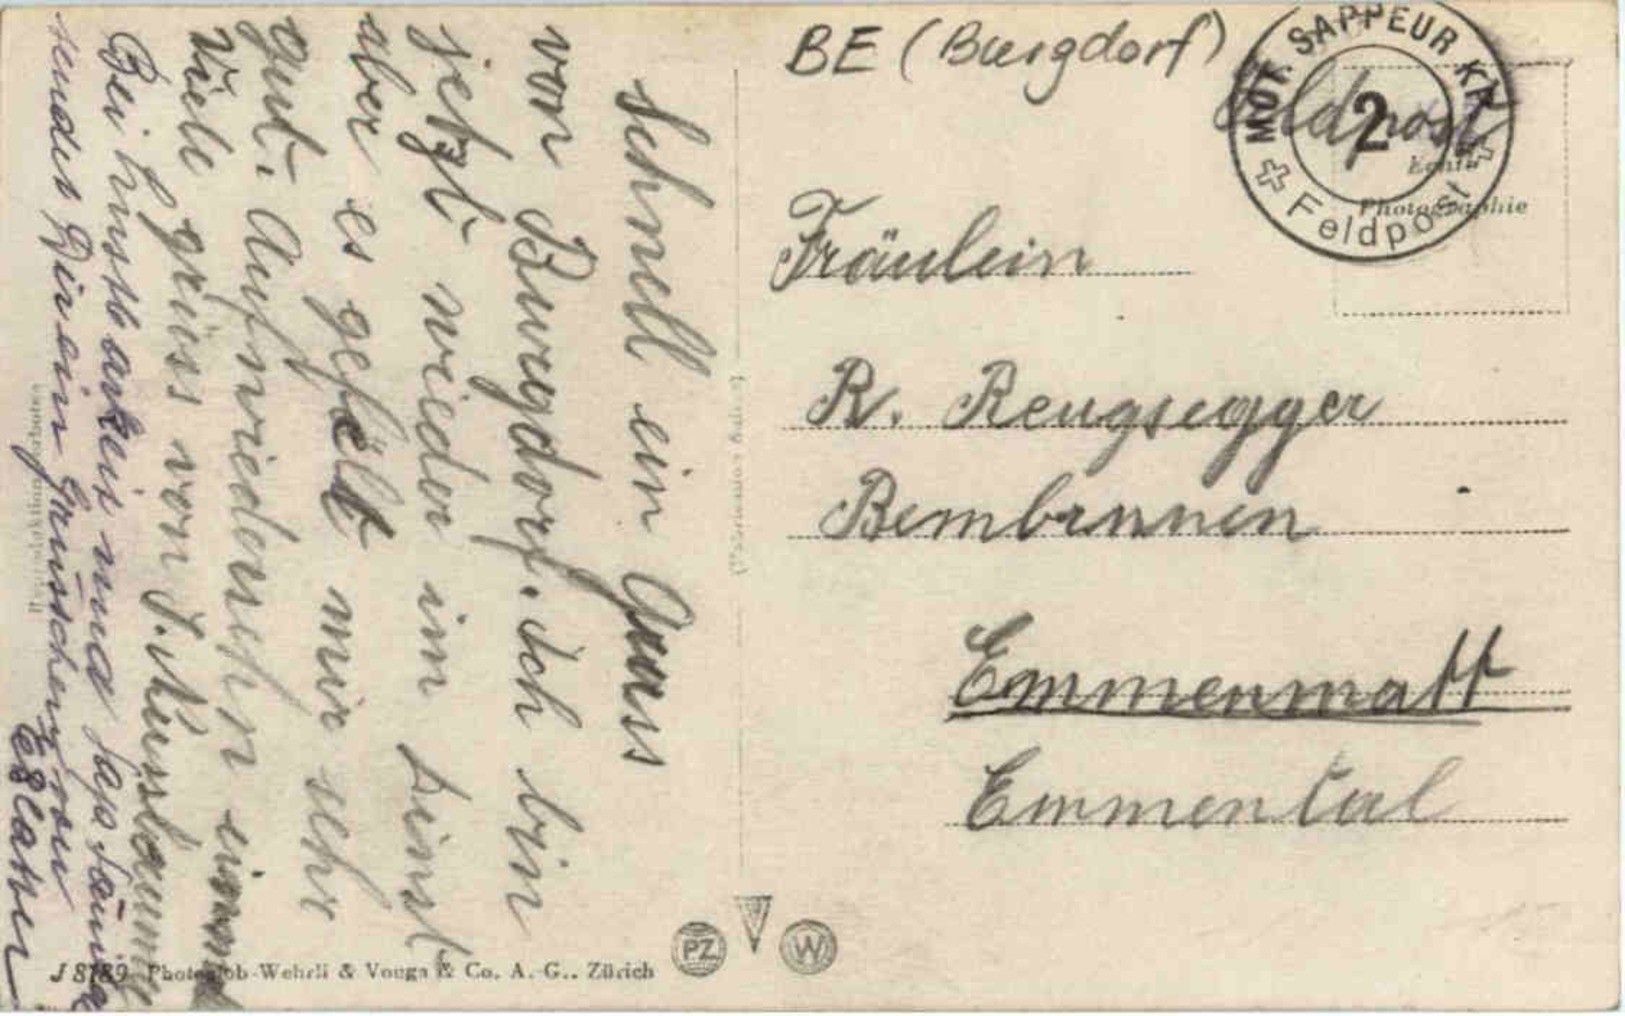 BE (Burgdorf)
MOT. SAPPEUR KP.
2
Feldpost
Feldpost
Echte
Photographie
Fräulein
R. Reugsegger
Bembrunnen
Emmenmatt
Emmental
Schnell ein Gruss
von Buregdorf. Ich bin
jetzt wieder im Dinst
aber es gefällt mir sehr
gut. Aufwiedersehn
Viele grüss von
Bei husst und
sendet Dir ein Grüsschen von
J 8189 Photoglob-Wehrli & Vouga & Co. A.-G., Zürich
PZ
W